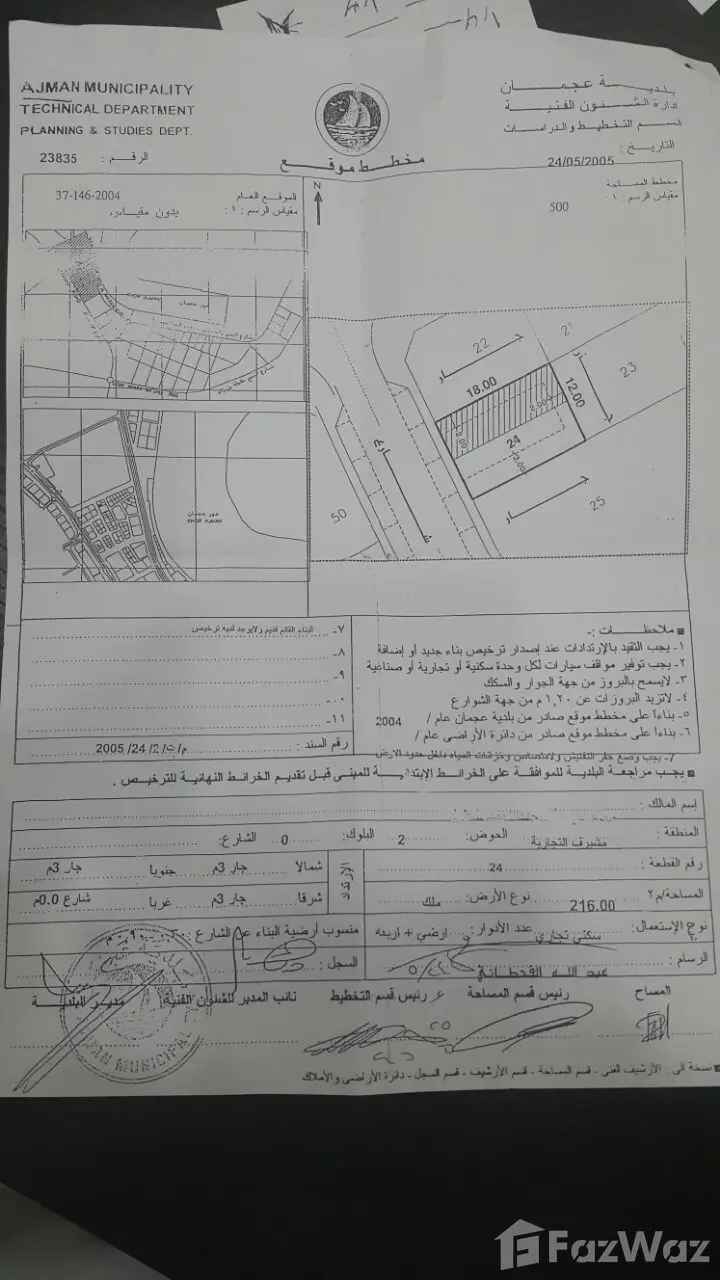 AJMAN MUNICIPALITY
TECHNICAL DEPARTMENT
PLANNING & STUDIES DEPT.
بلديـــة عجمـــان
إدارة الشئون الفنية
قسم التخطيط والدراسات
الرقم : 23835
مخطط موقع
التاريخ : 24/05/2005
الموقع العام 37-146-2004
مقياس الرسم : ١ : بدون مقياس
N
مخطط المساحة
مقياس الرسم : ١ : 500
22
21
23
18.00
12.00
جار
جار
24
2.00
2.00
2.00
شارع
50
جار
25
خور عجمان
■ ملاحظـــات :-
١- يجب التقيد بالإرتدادات عند إصدار ترخيص بناء جديد أو إضافة
٢- يجب توفير مواقف سيارات لكل وحدة سكنية أو تجارية أو صناعية
٣- لايسمح بالبروز من جهة الجوار والسكك
٤- لاتزيد البروزات عن ١,٢٠ م من جهة الشوارع
٥- بناءاً على مخطط موقع صادر من بلدية عجمان عام / 2004
٦- بناءاً على مخطط موقع صادر من دائرة الأراضى عام /
7- يجب وضع حفر التفتيش والامتصاص وخزانات المياه داخل حدود الارض
٧- البناء القائم قديم ولايوجد لديه ترخيص
٨-
٩-
١٠-
١١-
رقم السند : م/ت/2/ 24/ 2005
■ يجب مراجعة البلدية للموافقة على الخرائط الإبتدائية للمبنى قبل تقديم الخرائط النهائية للترخيص .
إسم المالك :
المنطقة : مشيرف التجارية الحوض: 2 البلوك: 0 الشارع:
رقم القطعة : 24
الإرتداد شمالا جار 3م جنوبا جار 3م
المساحة/م٢ 216.00 نوع الأرض: ملك
شرقا جار 3م غربا شارع 0.0م
نوع الإستعمال: سكني تجاري عدد الأدوار: ارضي + اربعه
منسوب أرضية البناء عن الشارع
الرسام : عبد الله القحطاني
السجل :
المساح رئيس قسم المساحة رئيس قسم التخطيط نائب المدير للشئون الفنية مديـر البلديـة
AJMAN MUNICIPALITY
■ نسخة الى : الأرشيف الفنى - قسم المساحة - قسم الأرشيف - قسم السجل - دائرة الأراضى والأملاك
FazWaz